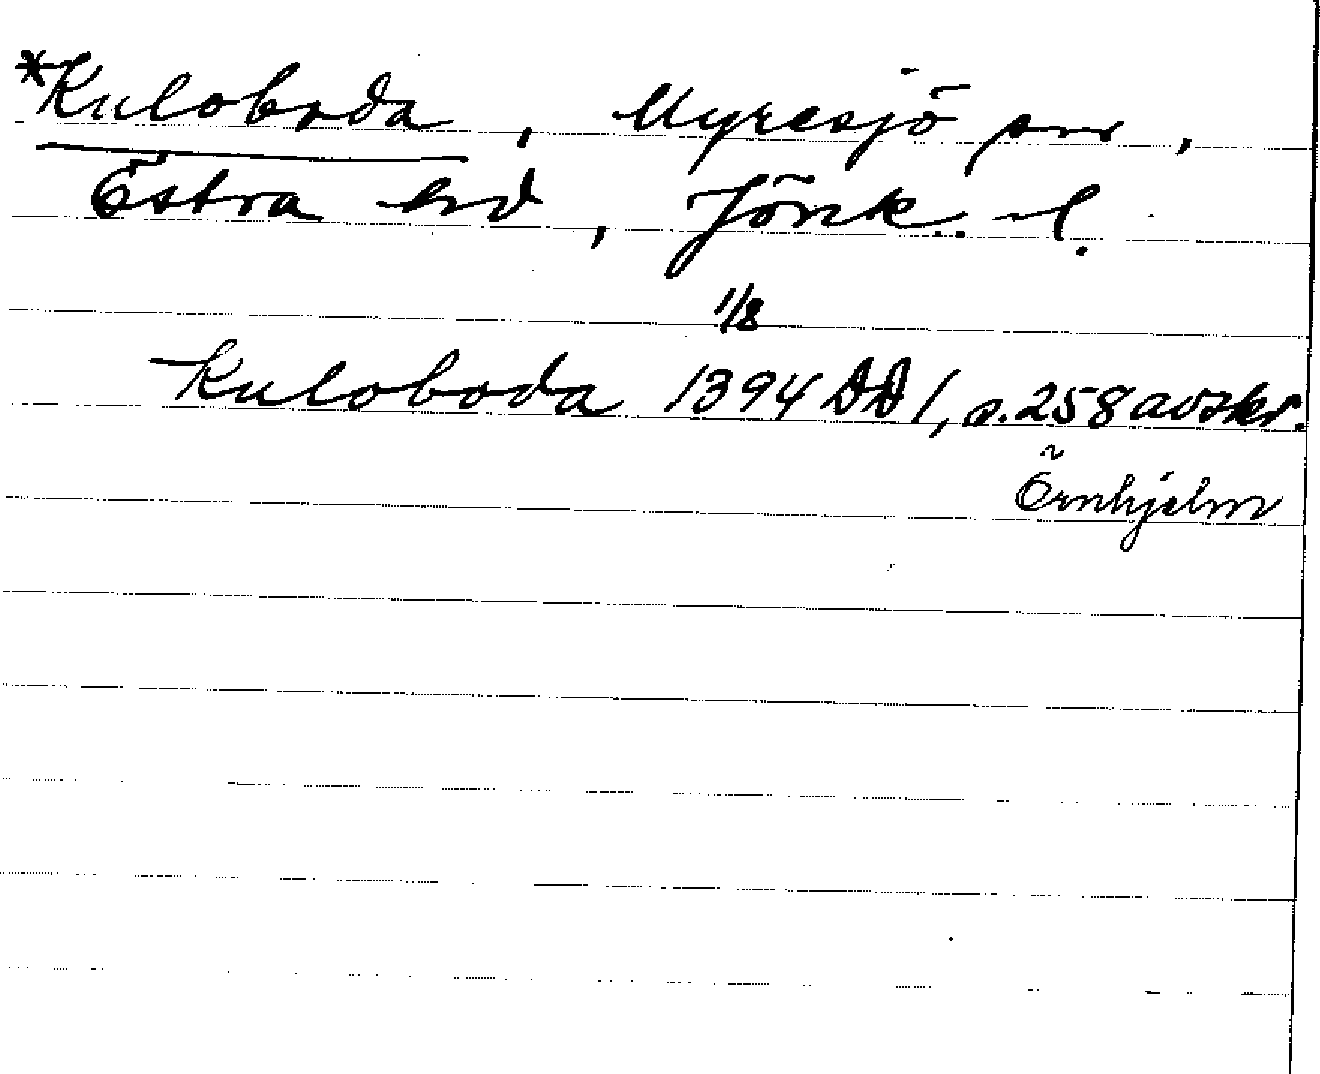 *Kuloboda, Myresjö sn,
Östra hd, Jönk. l.
1/8
Kuloboda 1394 DD 1, s. 258 avskr.
Örnhjelm